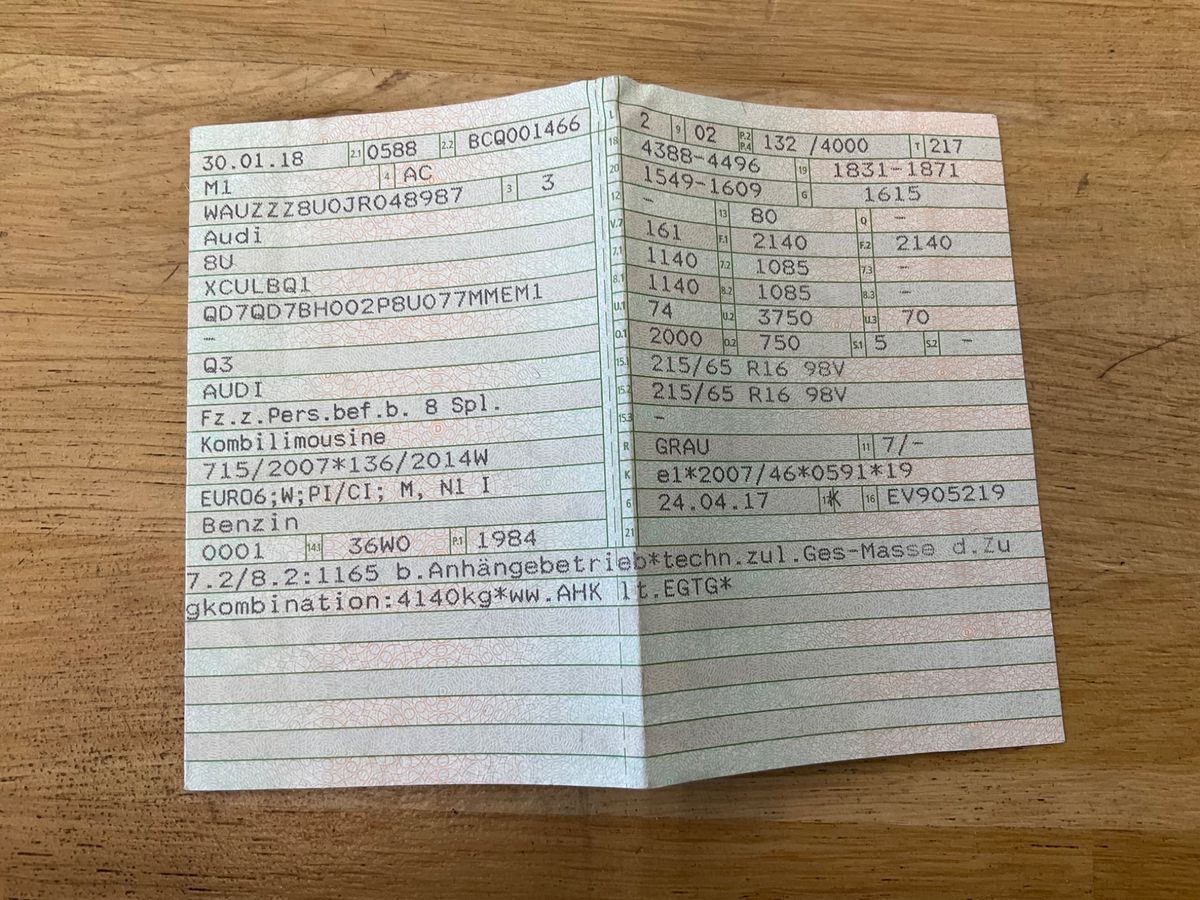 30.01.18 2.1 0588 2.2 BCQ001466
M1 4 AC
WAUZZZ8U0JR048987 3 3
Audi
8U
XCULBQ1
QD7QD7BH002P8U077MMEM1
—
Q3
AUDI
Fz.z.Pers.bef.b. 8 Spl.
Kombilimousine
715/2007*136/2014W
EURO6;W;PI/CI; M, N1 I
Benzin
0001 14.1 36W0 P.1 1984
L 2 9 02 P.2 P.4 132 /4000 T 217
18 4388-4496 19 1831-1871
20 1549-1609 G 1615
12 — 13 80 Q —
V.7 161 F.1 2140 F.2 2140
7.1 1140 7.2 1085 7.3 —
8.1 1140 8.2 1085 8.3 —
U.1 74 U.2 3750 U.3 70
O.1 2000 O.2 750 S.1 5 S.2 —
15.1 215/65 R16 98V
15.2 215/65 R16 98V
15.3 —
R GRAU 11 7/-
K e1*2007/46*0591*19
6 24.04.17 17 K 16 EV905219
21
7.2/8.2:1165 b.Anhängebetrieb*techn.zul.Ges-Masse d.Zu
gkombination:4140kg*ww.AHK lt.EGTG*